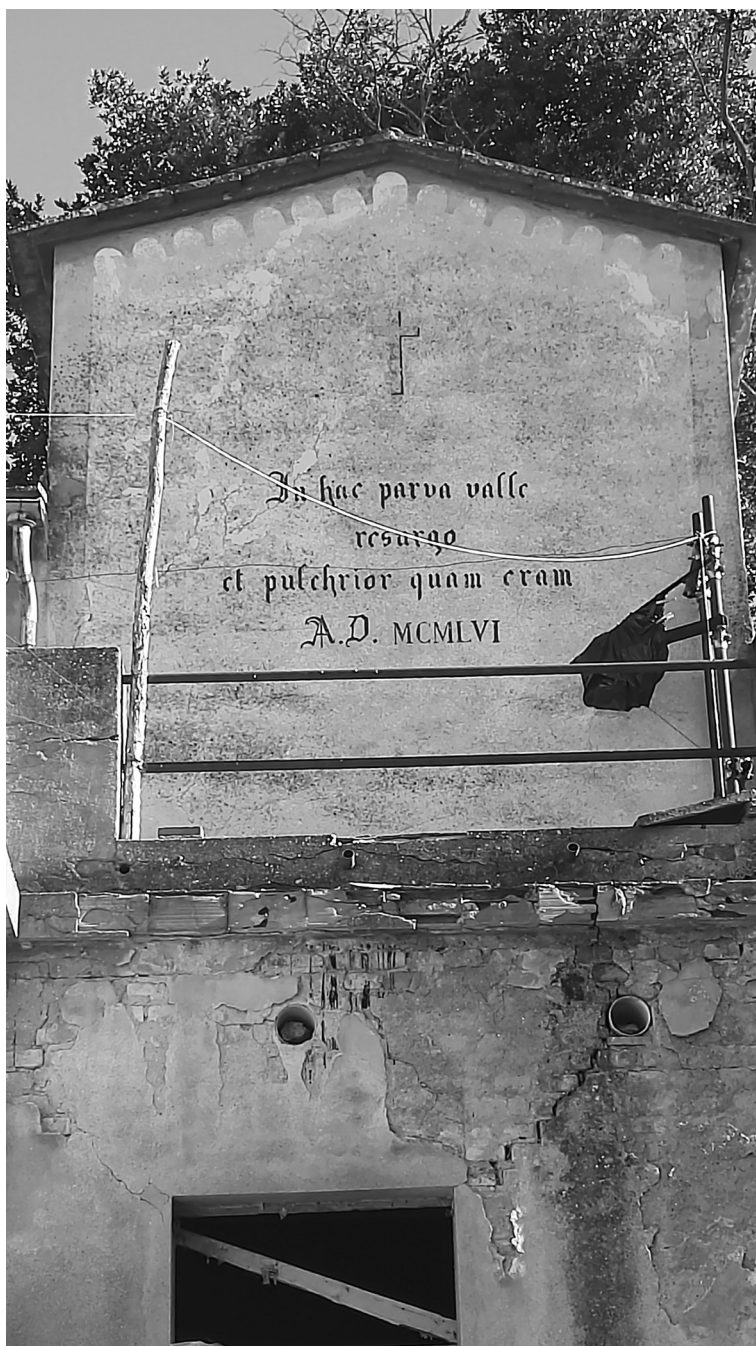 In hac parva valle
resurgo
et pulchrior quam eram
A.D. MCMLVI